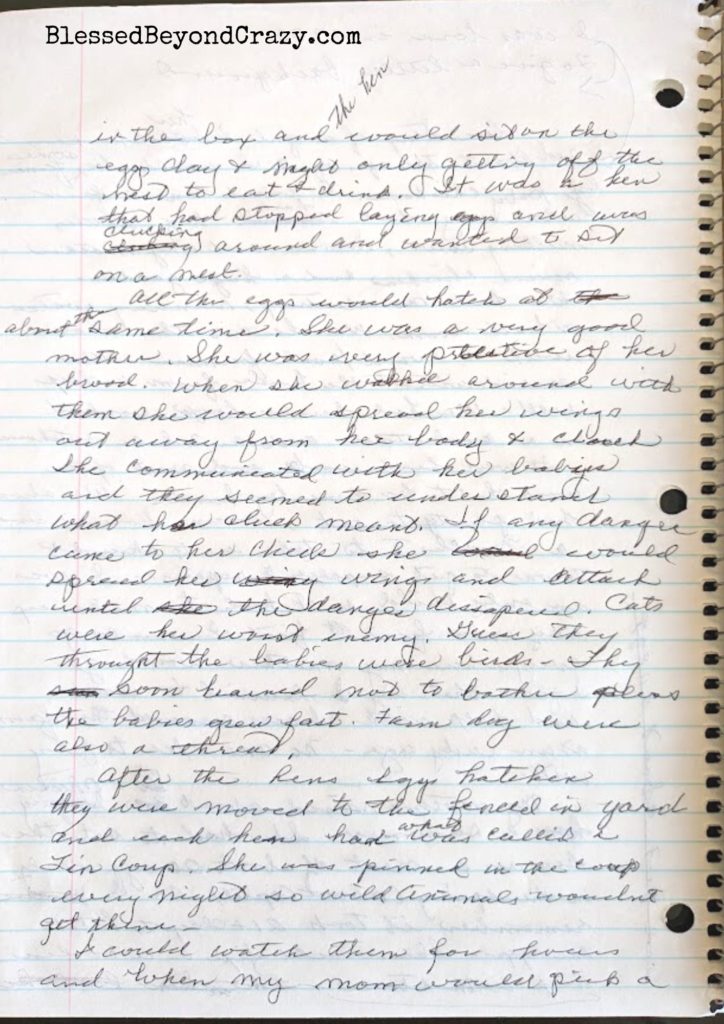 BlessedBeyondCrazy.com
the hen
in the box and would sit on the
egg day & night only getting off the
nest to eat & drink. It was a hen
that had stopped laying egg and was
clucking
around and wanted to sit
on a nest.
All the eggs would hatch at the
about the same time. She was a very good
mother. She was very protective of her
brood. When she walked around with
them she would spread her wings
out away from her body & cluck
She communicated with her babys
and they seemed to understand
what her cluck meant. If any danger
came to her chicks she would
spread her wing wings and attack
until she the danger dissapered. Cats
were her worst enemy. Guess they
throught the babies were birds - They
soon learned not to bother plus
the babies grew fast. Farm dog were
also a thread.
After the hens eggs hatchen
they were moved to the fenced in yard
and each hen had what was called a
Tin Coup. She was pinned in the coup
every night so wild animals wouldnt
get them -
I could watch them for hours
and when my mom would pick a